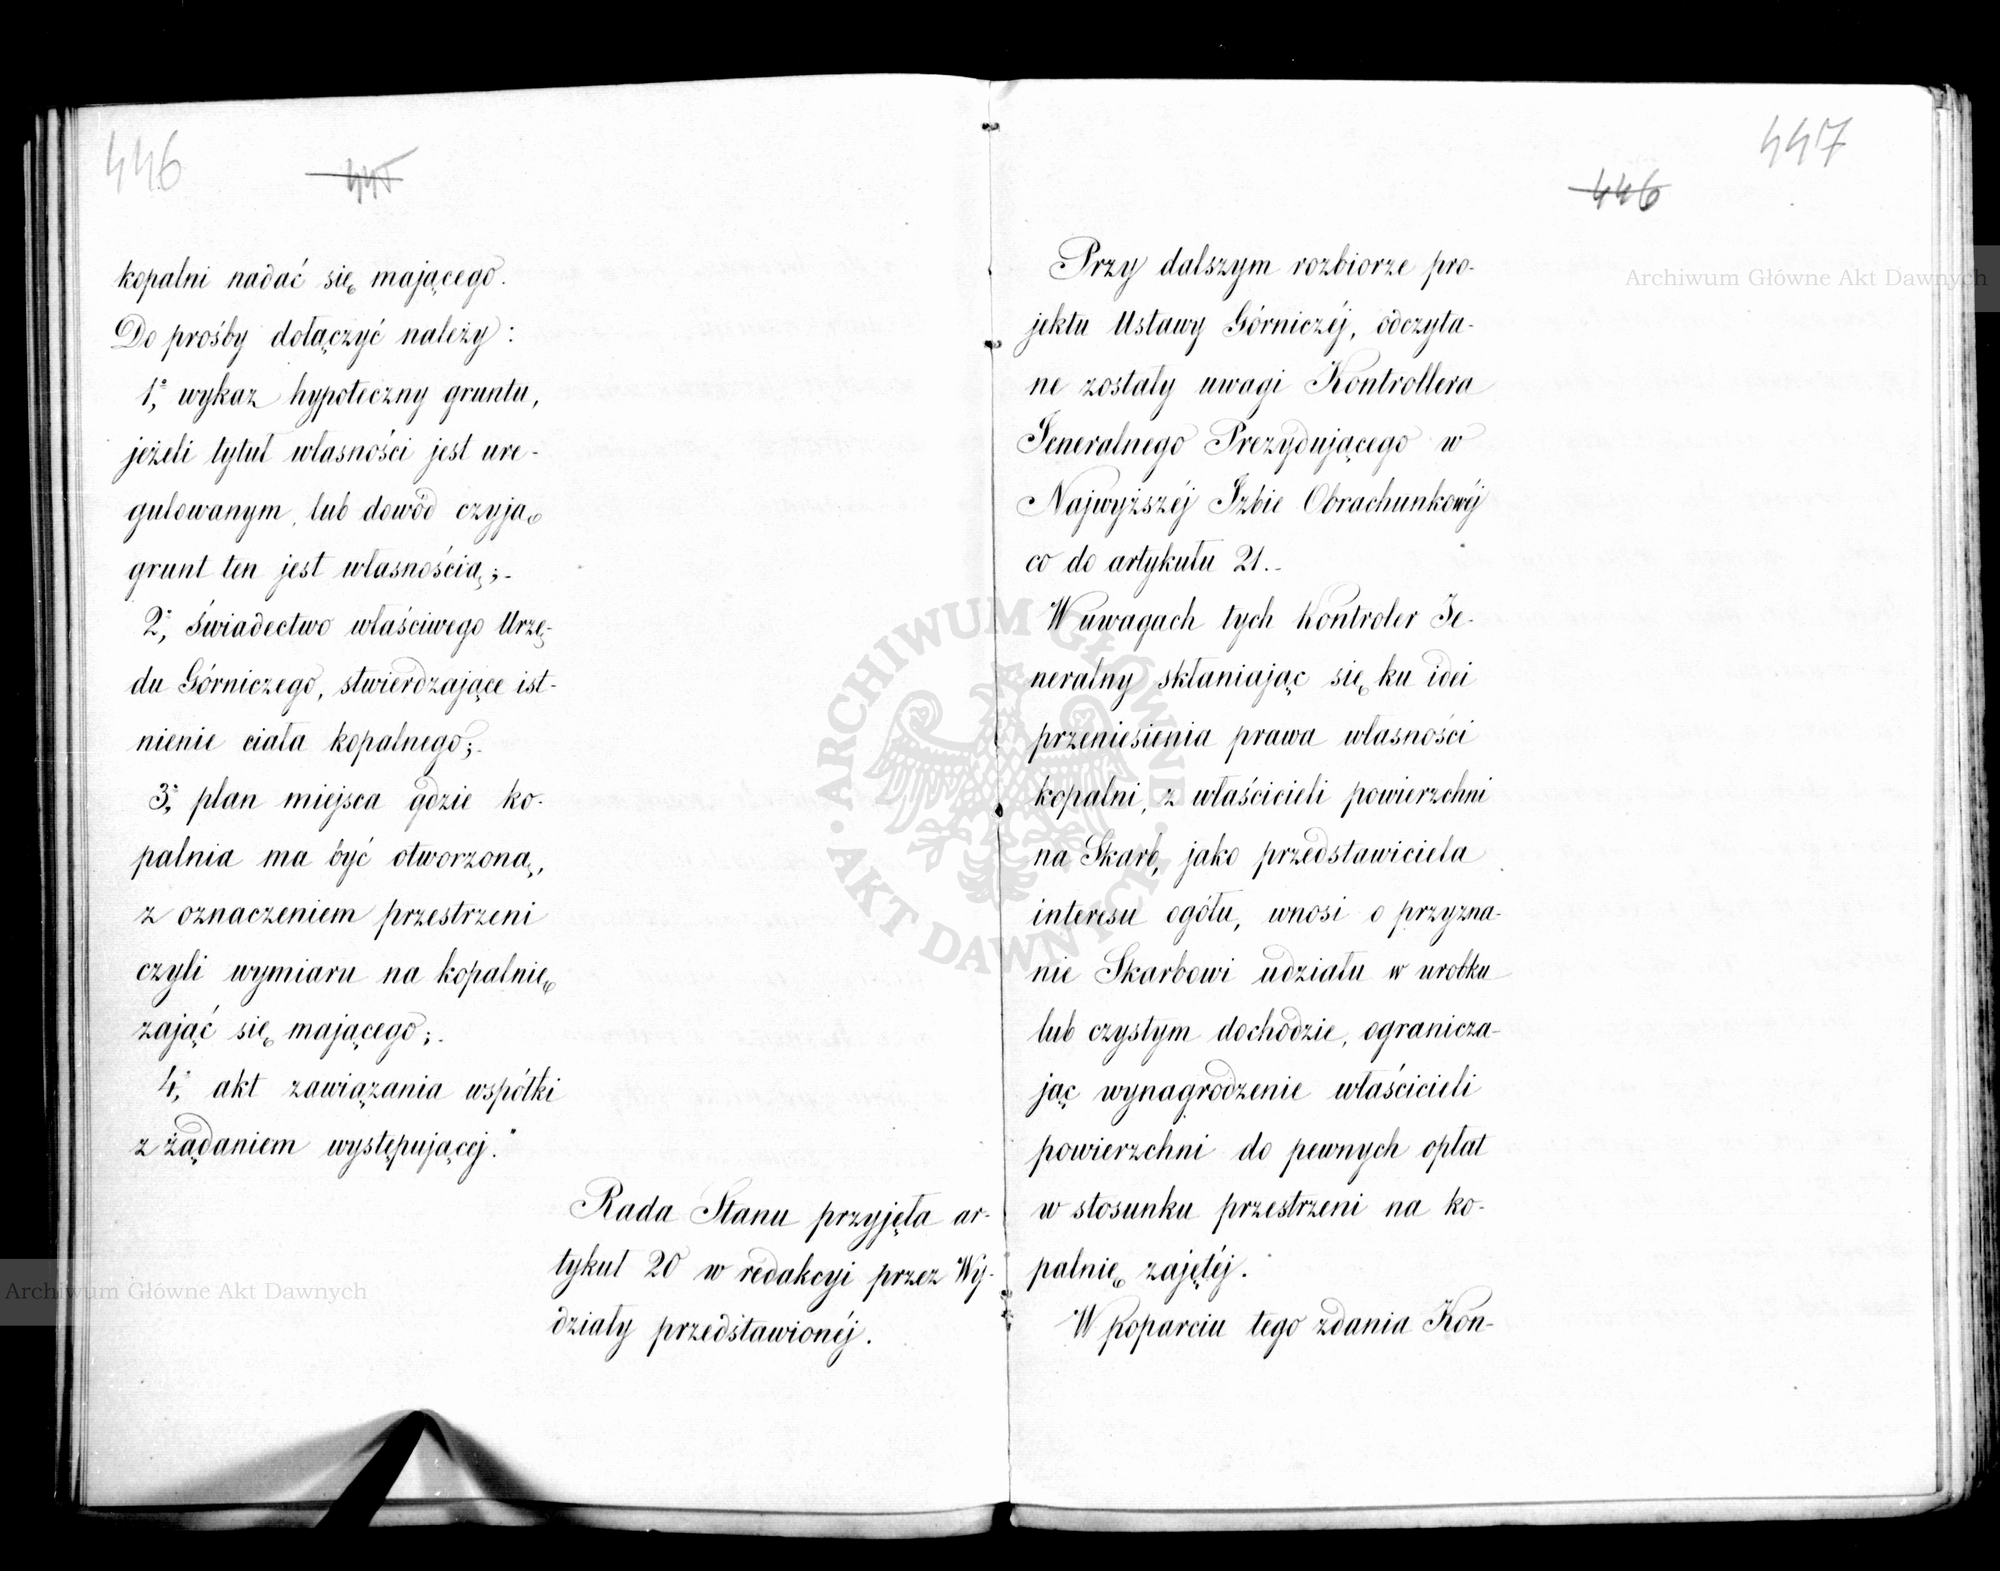 446
445
kopalni nadać się mającego.
Do prośby dołączyć należy:
1º, wykaz hypoteczny gruntu,
jeżeli tytuł własności jest ure-
gulowanym, lub dowód czyją
grunt ten jest własnością;-
2º, świadectwo właściwego Urzę-
du Górniczego, stwierdzające ist-
nienie ciała kopalnego;-
3º, plan miejsca gdzie ko-
palnia ma być otworzoną,
z oznaczeniem przestrzeni
czyli wymiaru na kopalnię
zająć się mającego;-
4º, akt zawiązania współki
z żądaniem występującej."
Rada Stanu przyjęła ar-
tykuł 20 w redakcyi przez Wy-
działy przedstawionéj.
447
446
Przy dalszym rozbiorze pro-
jektu Ustawy Górniczéj, odczyta-
ne zostały uwagi Kontrollera
Jeneralnego Prezydującego w
Najwyższéj Izbie Obrachunkowéj
co do artykułu 21.-
W uwagach tych Kontroler Je-
neralny skłaniając się ku idei
przeniesienia prawa własności
kopalni, z właścicieli powierzchni
na Skarb, jako przedstawiciela
interesu ogółu, wnosi o przyzna-
nie Skarbowi udziału w urobku
lub czystym dochodzie, ogranicza-
jąc wynagrodzenie właścicieli
powierzchni do pewnych opłat
w stosunku przestrzeni na ko-
palnię zajętéj.
W poparciu tego zdania Kon-
Archiwum Główne Akt Dawnych
Archiwum Główne Akt Dawnych
ARCHIWUM GŁÓWNE AKT DAWNYCH